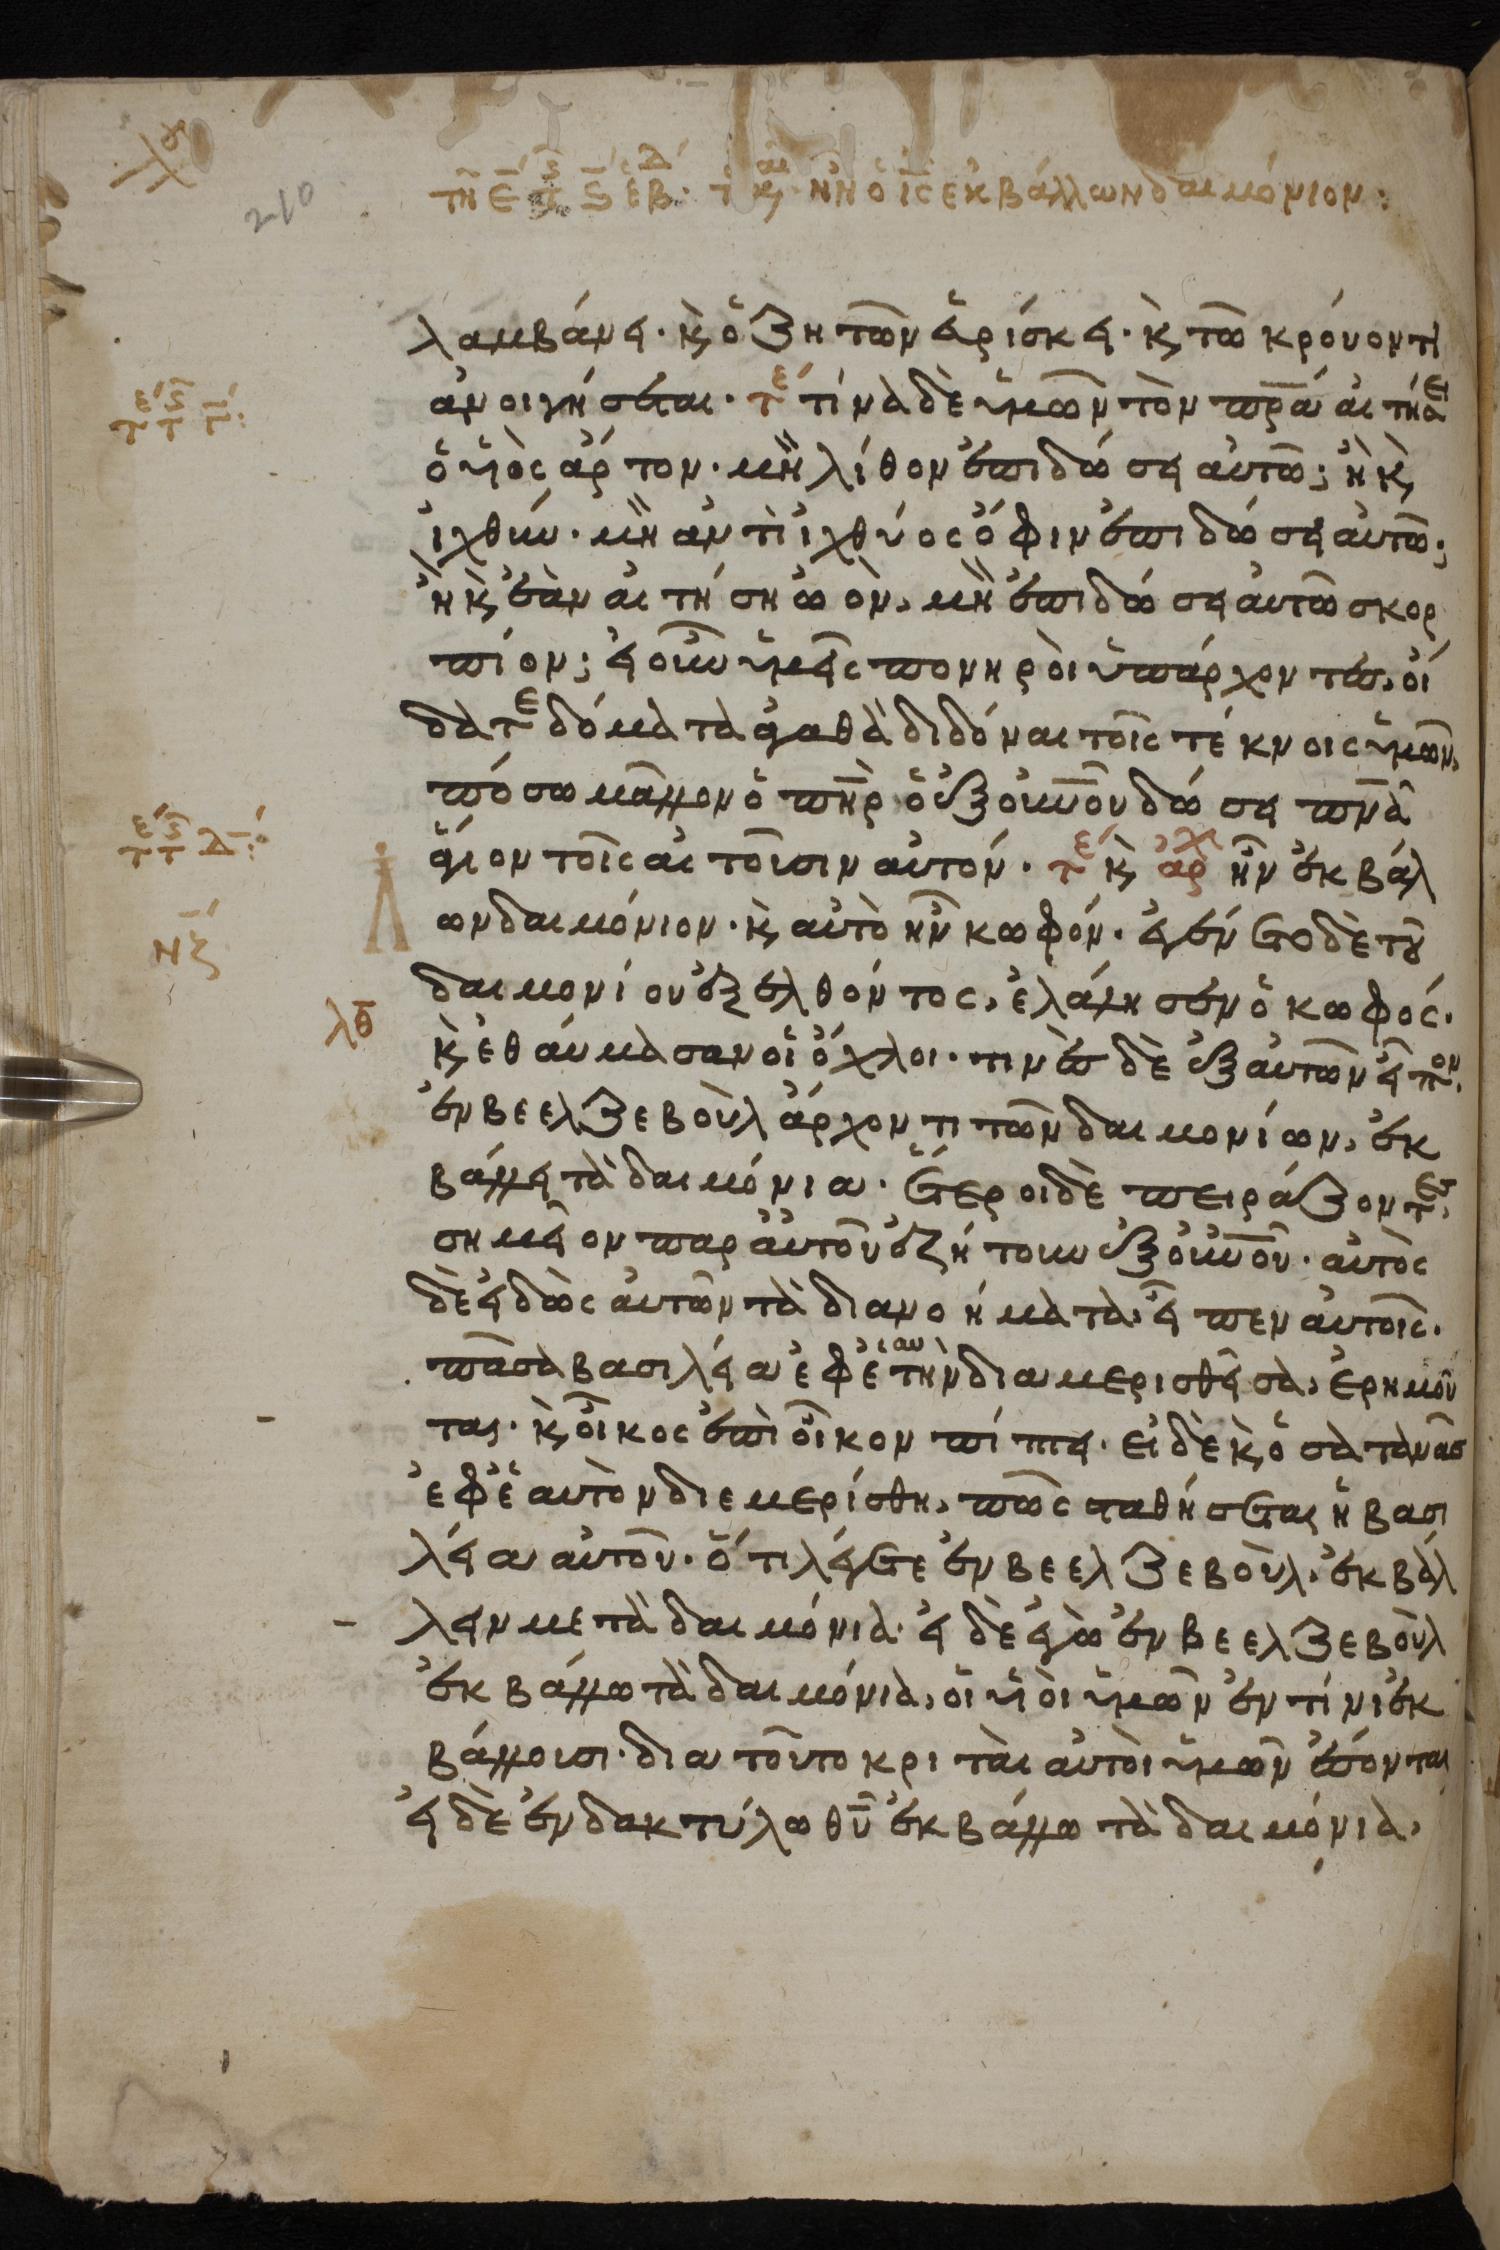 210
τῆ ε̄ τ̄ ς̄ ἑβ δ. τ κ ἦν ὁ ις ἐκβάλλων δαιμόνιον:
λαμβάνει· κ, ὁ ζητῶν εὑρίσκει· κ, τῶ κρούοντι
ἀνοιγήσεται· τε τίνα δὲ ὑμῶν τὸν πρα αἰτήσει
ὁ υἱὸς ἄρτον· μὴ λίθον ἐπιδώσει αὐτῶ; ἢ κ,
ἰχθύν· μὴ ἀντὶ ἰχθύος ὄφιν ἐπιδώσει αὐτῶ;
ἢ κ, ἐὰν αἰτήση ὠὸν, μὴ ἐπιδώσει αὐτῶ σκορ
πίον; εἰ οὖν ὑμεῖς πονηροὶ ὑπάρχοντες, οἴ
δατε δόματα ἀγαθὰ διδόναι τοῖς τέκνοις ὑμῶν,
πόσω μᾶλλον ὁ πηρ ὁ ἐξ οὐνου δώσει πνα
ἅγιον τοῖς αἰτοῦσιν αὐτόν· τε κ, ἀρχ ἦν ἐκβάλ
ων δαιμόνιον· κ, αὐτὸ ἦν κωφόν· ἐγένετο δὲ τοῦ
δαιμονίου ἐξελθόντος, ἐλάλησεν ὁ κωφός·
κ, ἐθαύμασαν οἱ ὄχλοι· τινὲς δὲ ἐξ αὐτῶν εἶπον·
ἐν βεελζεβοὺλ ἄρχοντι τῶν δαιμονίων, ἐκ
βάλλει τὰ δαιμόνια· ἕτεροι δὲ πειράζοντες,
σημεῖον παρ αὐτοῦ ἐζήτουν ἐξ οὐνου· αὐτὸς
δὲ εἰδὼς αὐτῶν τὰ διανοήματα· εἶπεν αὐτοῖς·
πᾶσα βασιλεία ἐφ ἑαυτὴν διαμερισθεῖσα, ἐρημοῦ
ται· κ, οἶκος ἐπὶ οἶκον πίπτει· εἰ δὲ κ, ὁ σατανᾶς
ἐφ ἑαυτὸν διεμερίσθη, πῶς σταθήσεται ἡ βασι
λεία αὐτοῦ· ὅτι λέγετε ἐν βεελζεβοὺλ· ἐκβάλ
λειν με τὰ δαιμόνια· εἰ δὲ ἐγὼ ἐν βεελζεβοὺλ
ἐκβάλλω τὰ δαιμόνια, οἱ υἱοὶ ὑμῶν ἐν τίνι ἐκ
βάλλουσι· δια τοῦτο κριταὶ αὐτοὶ ὑμῶν ἔσονται
εἰ δὲ ἐν δακτύλω θυ ἐκβάλλω τὰ δαιμόνια,
νζ
λθ